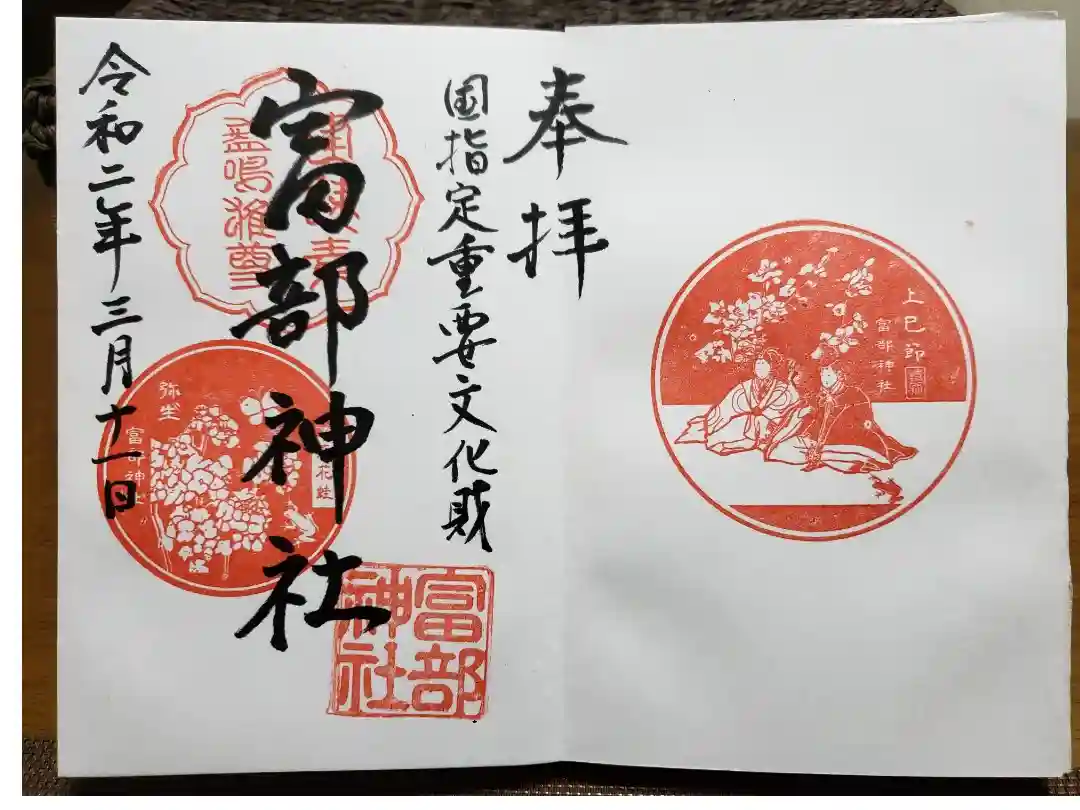 上巳節
富部神社
奉拝
国指定重要文化財
富部神社
富部
神社
花蛙
弥生
富部神社
令和二年三月十一日